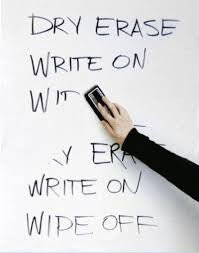 DRY ERASE
WRITE ON
WI
Y ERA
WRITE ON
WIPE OFF